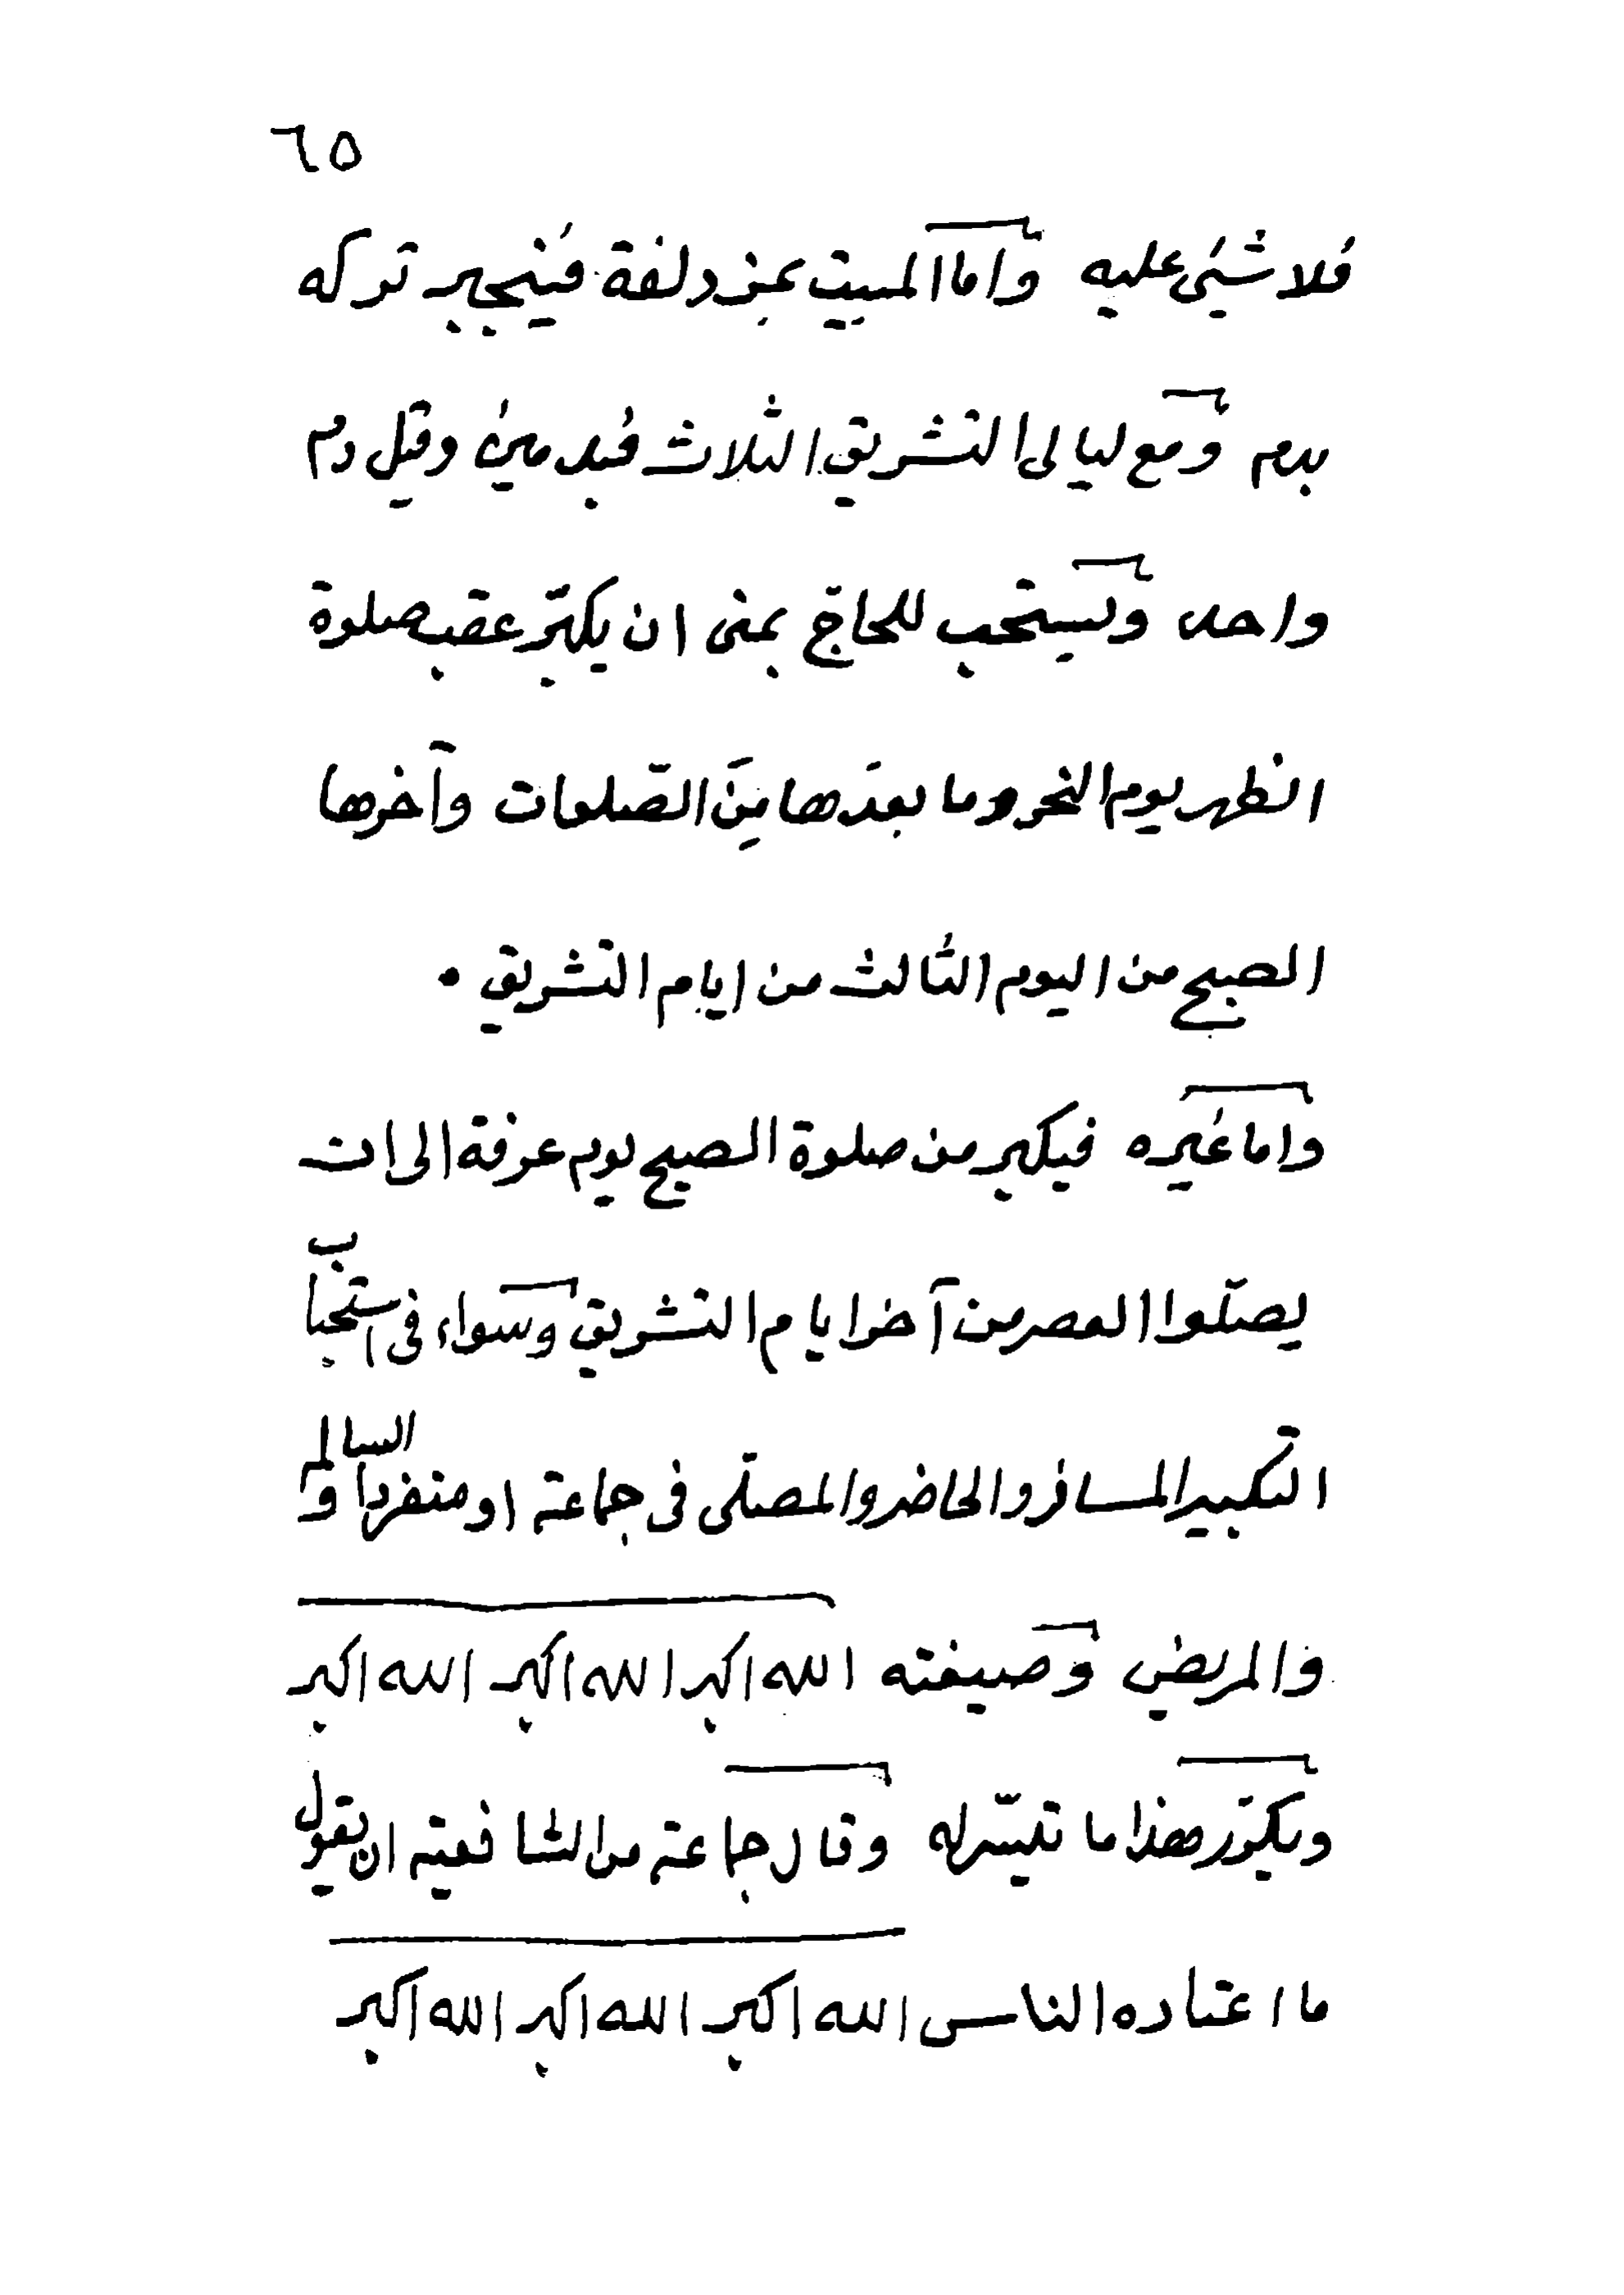 ٦٥
فلا شيئ عليه واما المبيت بمزدلفة فينجبر تركه
بدم ومع ليالى التشريق الثلاث فبدمين وقيل دم
واحد ويستحب للحاجّ بمنى ان يكبّر عقب صلوة
الظهر يوم النحر وما بعدَها مِنَ الصّلوات وآخرها
الصبح من اليوم الثالث من ايام التشريق .
واما غيره فيكبر من صلوة الصبح يوم عرفة الى ان
يصلّوا العصر من آخر ايام التشريق وسواء فى استحباب
التكبير المسافر والحاضر والمصلّى فى جماعة او منفردا والسالم
والمريض وصيغته الله اكبر الله اكبر الله اكبر
ويكرّر هذا ما تيسّر له وقال جماعة من الشافعية ان يقول
ما اعتاده الناس الله اكبر الله اكبر الله اكبر